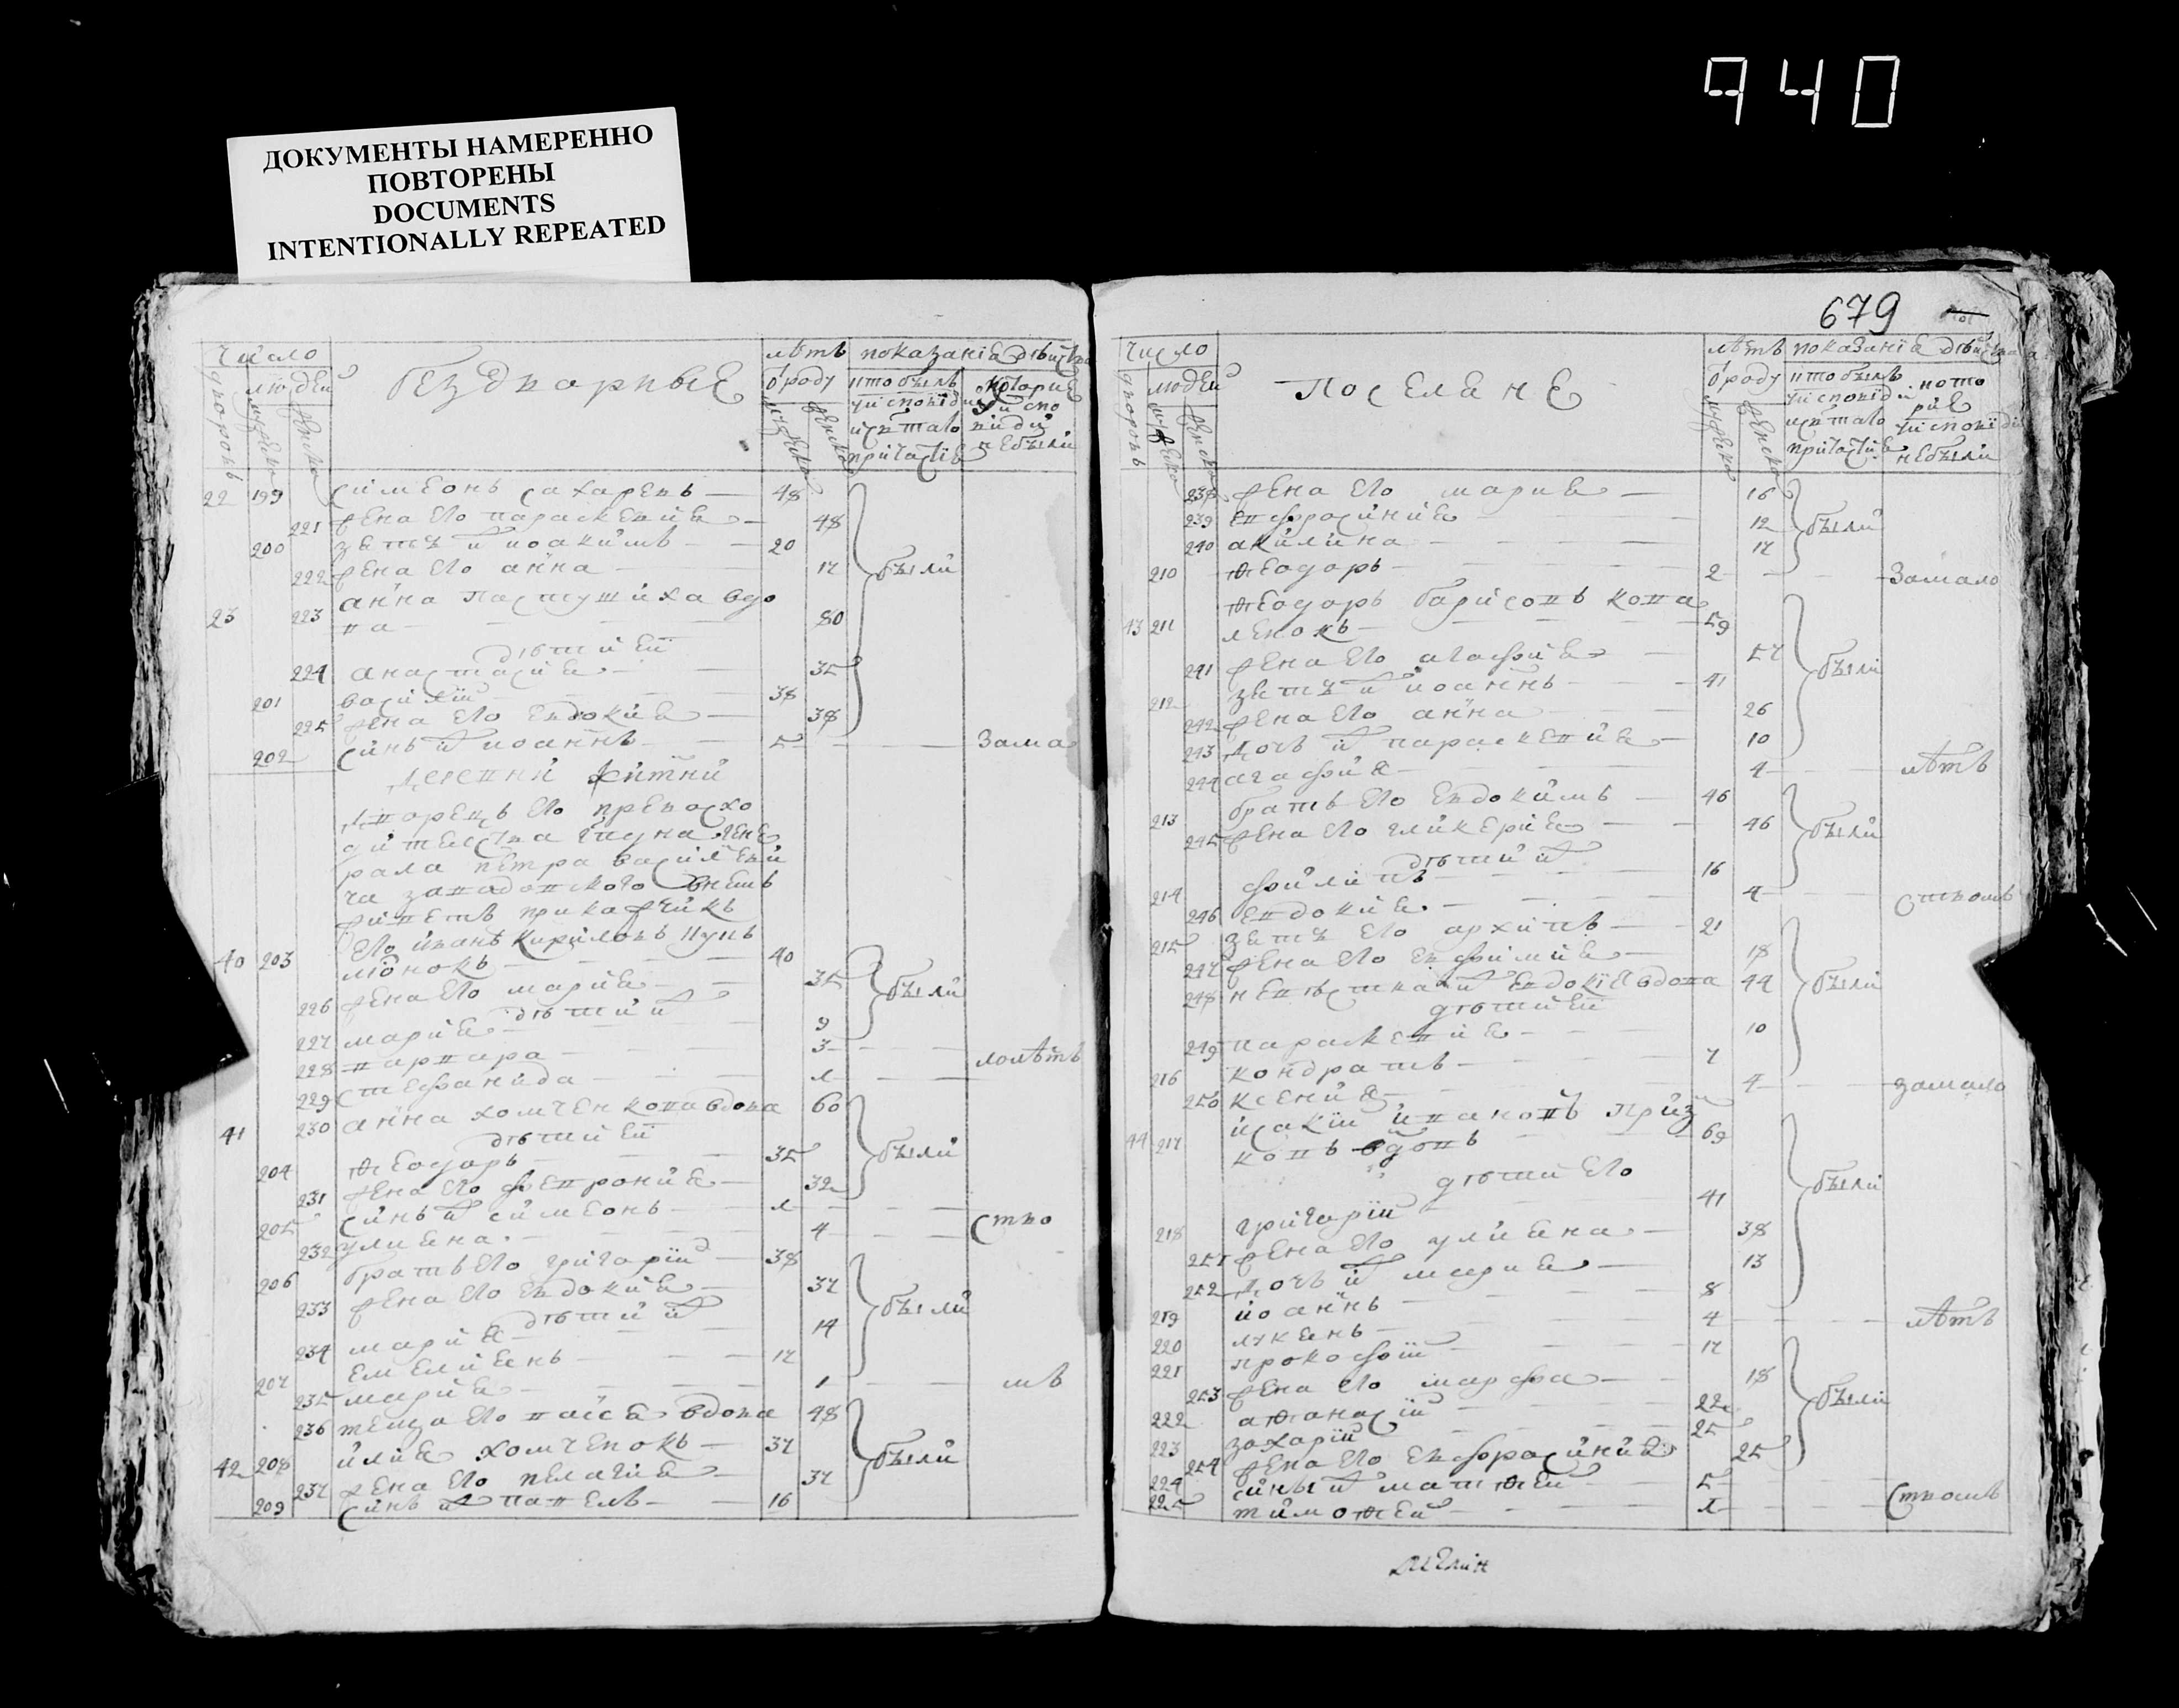 940
ДОКУМЕНТЫ НАМЕРЕННО
ПОВТОРЕНЫ
DOCUMENTS
INTENTIONALLY REPEATED
число
людей
бездворные
лѣтъ
ѿ роду
показаніе дѣйства
кто былъ
у исповѣди
и святаго
причастіѧ
которие
у испо
вѣди
не были
22 199 симеонъ захаревъ 48
221 жена его параскевиѧ 48
200 зѧть их иоакимъ 20
222 жена его анна 17 были
анна пастушиха вдо
23 223 ва 80
дѣти еи
224 анастасиѧ 35
201 василїи 38
225 жена его евдокиѧ 38
202 синъ их иоаннъ 5 зама
деревни
дворецъ его превосхо
дителства гпдна гене
рала петра василеви
ча завадовского
живетъ прикажчикъ
его иванъ кириловъ
40 203 40
226 жена его мариѧ 35 были
дѣти их
227 мариѧ 9
228 варвара 3 лолѣтъ
229 стефанида 1
41 230 анна хомченкова вдова 60
дѣти еи
204 ѳеодоръ 35 были
231 жена его февронидѧ 32
205 синъ их симеонъ 1
232 улиѧна 4 ство
206 братъ его григорїи 38
233 жена его евдокиѧ 37
дѣти их были
234 мариѧ 14
207 емелиѧнъ 17
235 мариѧ 1 мъ
236 теща его вдова 48
42 208 илиѧ хомченокъ 37 были
237 жена его пелагиѧ 37
209 синъ их павелъ 16
679
число
людей
поселѧне
лѣтъ
ѿ роду
показаніе дѣйства
кто былъ
у исповѣди
и святаго
причастіѧ
кото
рие
у исповѣди
не были
238 жена его мариѧ 16
239 евфросиниѧ 12 были
240 акилина 17
210 ѳеодоръ 2 замало
ѳеодоръ барисовъ кова
43 211 ленокъ 59
241 жена его агафиѧ 57
212 зѧть их иоаннъ 41 были
242 жена его анна 26
243 дочъ их параскевиѧ 10
244 агафиѧ 4 лѣтъ
213 братъ его евдокимъ 46
245 жена его гликериѧ 46 были
дѣти их
214 филипъ 16
246 евдокиѧ 4 ствомъ
215 зѧть его архипъ 21
247 жена его евфимиѧ 18
248 невѣстка их евдокїѧ вдова 44 были
дѣти еи
249 параскевиѧ 10
216 кондратъ 7
250 ксениѧ 4 замало
исакїи ивановъ
44 217 вдовъ 69
дѣти его
218 григорїи 41 были
251 жена его улиѧна 38
252 дочъ их мариѧ 13
219 иоаннъ 8
220 лукѧнъ 4 лѣтъ
221 прокофїи 17
253 жена его марфа 18
222 аѳанасїи 22 были
223 захарїи 25
254 жена его евфрасиниѧ 25
224 синъ их матѳеи 5
225 тимоѳеи 1 ствомъ